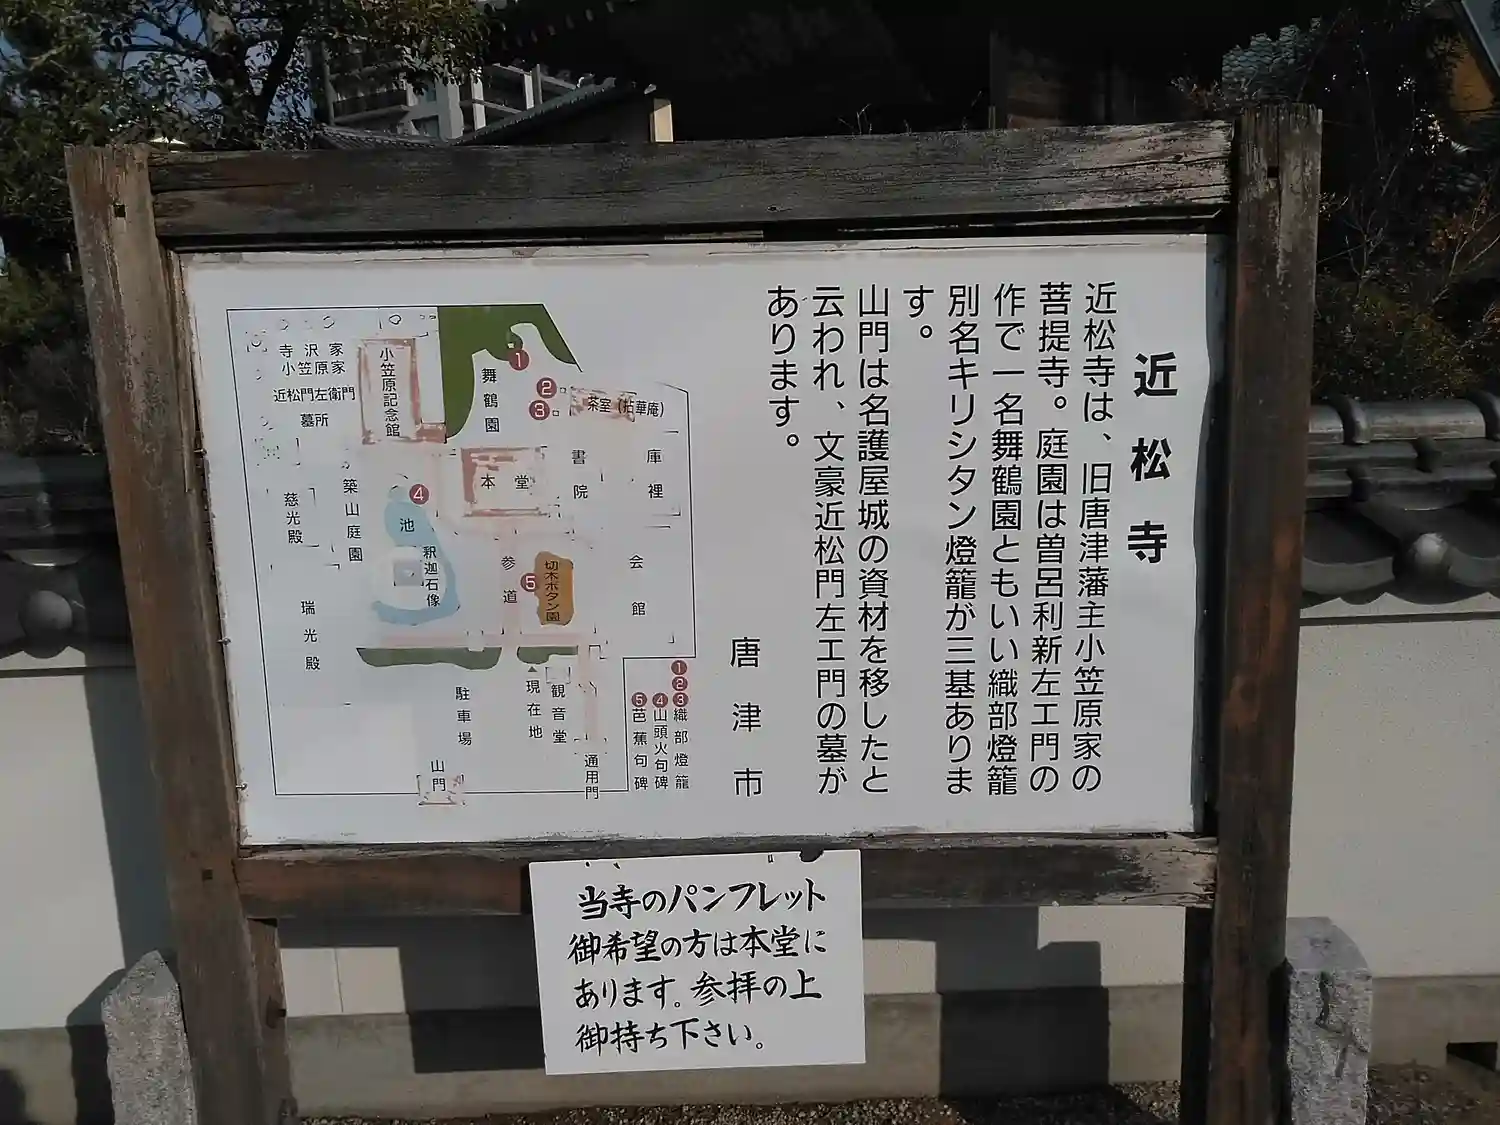 近松寺
近松寺は、旧唐津藩主小笠原家の
菩提寺。庭園は曽呂利新左エ門の
作で一名舞鶴園ともいい織部燈籠
別名キリシタン燈籠が三基ありま
す。
山門は名護屋城の資材を移したと
云われ、文豪近松門左エ門の墓が
あります。
唐津市
寺沢家
小笠原家
近松門左衛門
墓所
小笠原記念館
舞鶴園
1
2
3
茶室（拈華庵）
本堂
書院
庫裡
慈光殿
築山庭園
4
池
釈迦石像
参道
5
切木ボタン園
会館
瑞光殿
駐車場
現在地
観音堂
通用門
山門
123織部燈籠
4山頭火句碑
5芭蕉句碑
当寺のパンフレット
御希望の方は本堂に
あります。参拝の上
御持ち下さい。